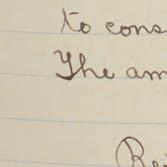 to cons
The am